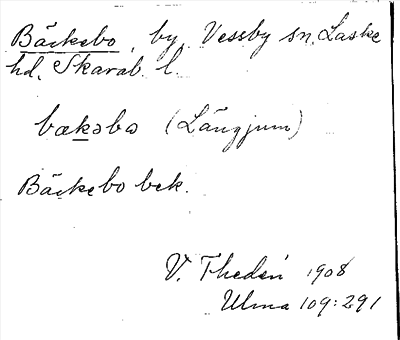 Bäckebo, by, Vessby sn, Laske
hd, Skarab. l.
bækəbω (Längjum)
Bäckebo bek.
V. Thedén 1908
Ulma 109:291